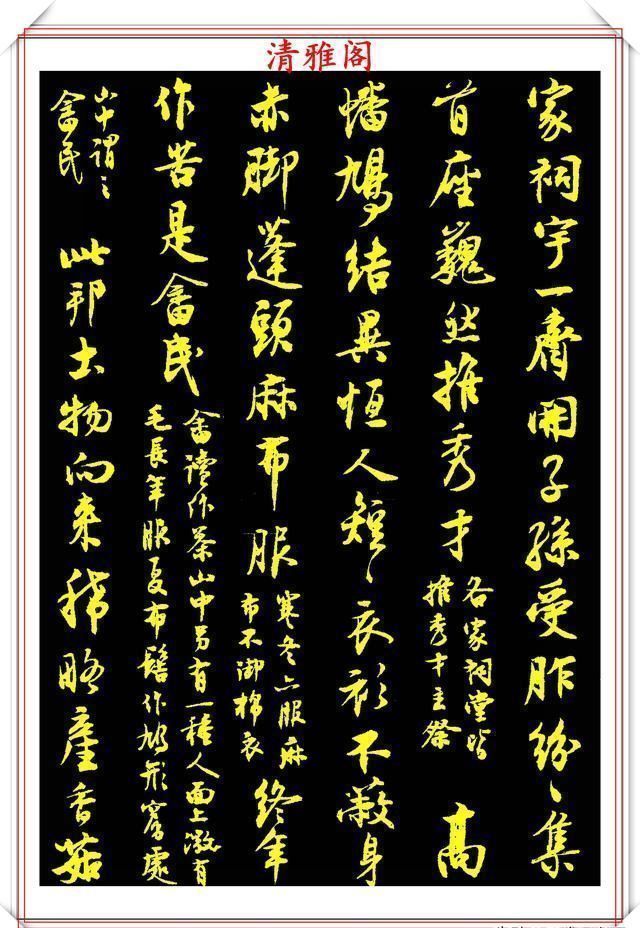 清雅阁
家祠宇一齊開子孫受胙紛〻集
首座巍然推秀才
各家祠堂皆
推秀才主祭
高
蟠鳩結異恒人短〻衣衫不蔽身
赤脚蓬頭麻布服
寒冬亦服麻
布不御棉衣
終年
作苦是畲民
畲讀作茶山中另有一種人面上微有
毛長年服夏布髻作鳩形窩處
山中謂之
畲民
此邦土物向来稱略産香菇